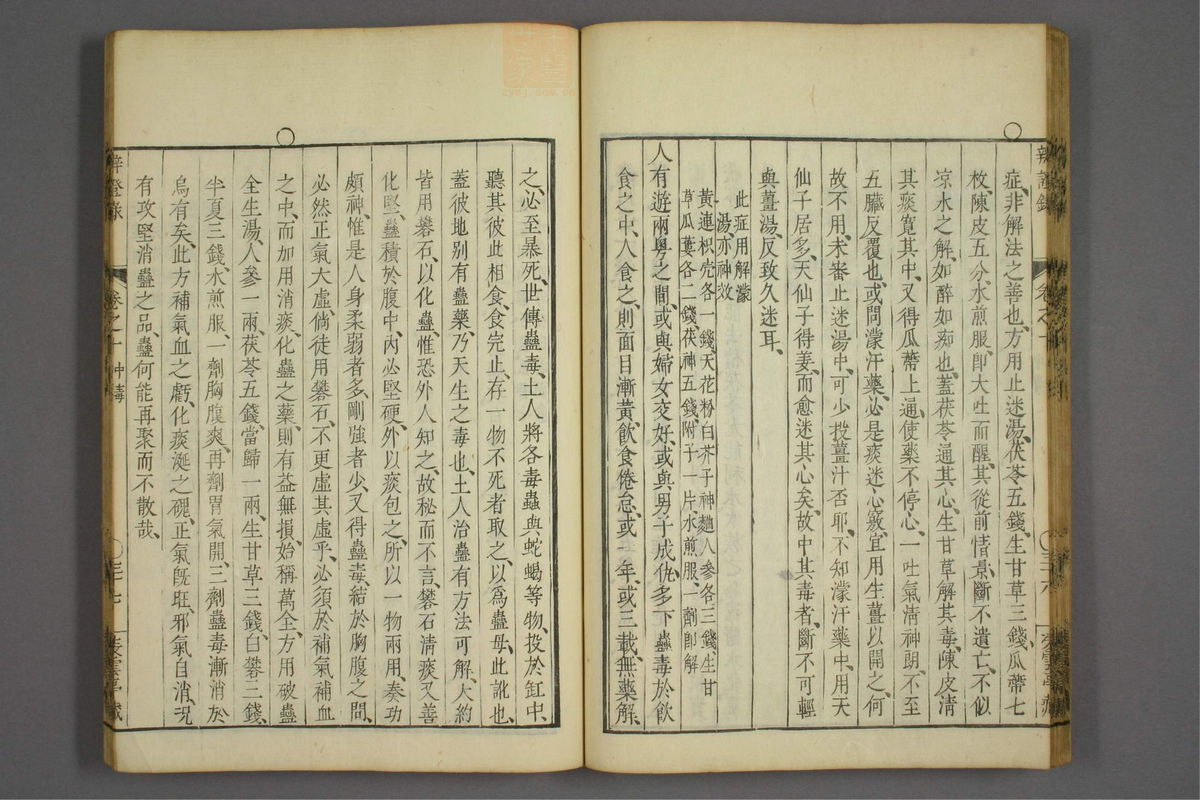 症非解法之善也方用止迷湯茯苓五錢生甘草三錢瓜蒂七
枚陳皮五分水煎服卽大吐而醒其從前情景斷不遺亡不似
凉水之解如醉如痴也蓋茯苓通其心生甘草解其毒陳皮淸
其痰寬其中又得瓜蒂上通使藥不停心一吐氣淸神朗不至
五臟反覆也或問濛汗藥必是痰迷心竅宜用生薑以開之何
故不用未審止迷湯中可少投薑汁否耶不知濛汗藥中用天
仙子居多天仙子得姜而愈迷其心矣故中其毒者斷不可輕
與薑湯反致久迷耳
此症用解濛
湯亦神效
黃連枳壳各一錢天花粉白芥子神麯人參各三錢生甘
草瓜蔞各二錢茯神五錢附子一片水煎服一劑卽解
人有遊兩粤之間或與婦女交好或與男子成仇多下蠱毒於飮
食之中人食之則面目漸黃飮食倦怠或一年或三載無藥解
之必至暴死世傳蠱毒土人將各毒蟲與蛇蝎等物投於缸中
聽其彼此相食食完止存一物不死者取之以爲蠱母此訛也
蓋彼地别有蠱藥乃天生之毒也土人治蠱有方法可解大約
皆用礬石以化蠱惟恐外人知之故秘而不言礬石淸痰又善
化堅蠱積於腹中内必堅硬外以痰包之所以一物兩用奏功
頗神惟是人身柔弱者多剛強者少又得蠱毒結於胸腹之間
必然正氣大虛倘徒用礬石不更虛其虛乎必須於補氣補血
之中而加用消痰化蠱之藥則有益無損始稱萬全方用破蠱
全生湯人參一兩茯苓五錢當歸一兩生甘草三錢白礬三錢
半夏三錢水煎服一劑胸腹爽再劑胃氣開三劑蠱毒漸消於
烏有矣此方補氣血之虧化痰涎之磈正氣旣旺邪氣自消況
有攻堅消蠱之品蠱何能再聚而不散哉